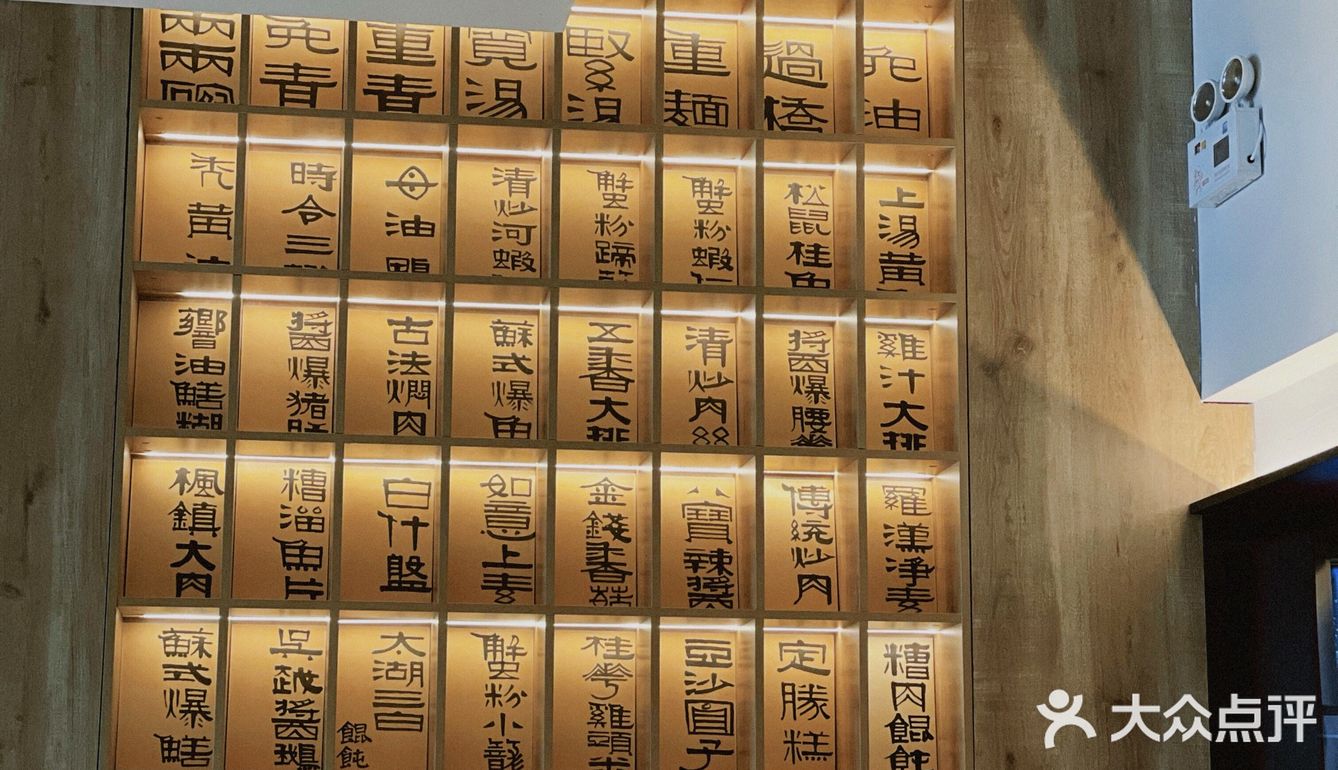 兩兩碗
免青
重青
寬湯
緊湯
重麵
過橋
免油
禿黃油
時令三
母油鴨
清炒河蝦
蟹粉蹄筋
蟹粉蝦仁
松鼠桂魚
上湯黃
響油鱔糊
醬爆豬肝
古法燜肉
蘇式爆魚
五香大排
清炒肉絲
醬爆腰花
雞汁大排
楓鎮大肉
糟溜魚片
白什盤
如意上素
金錢香菇
八寶辣醬
傳統炒肉
羅漢淨素
蘇式爆鱔
吳越醬鵝
太湖三白
餛飩
蟹粉小籠
桂花雞頭米
豆沙圓子
定勝糕
糟肉餛飩
大众点评